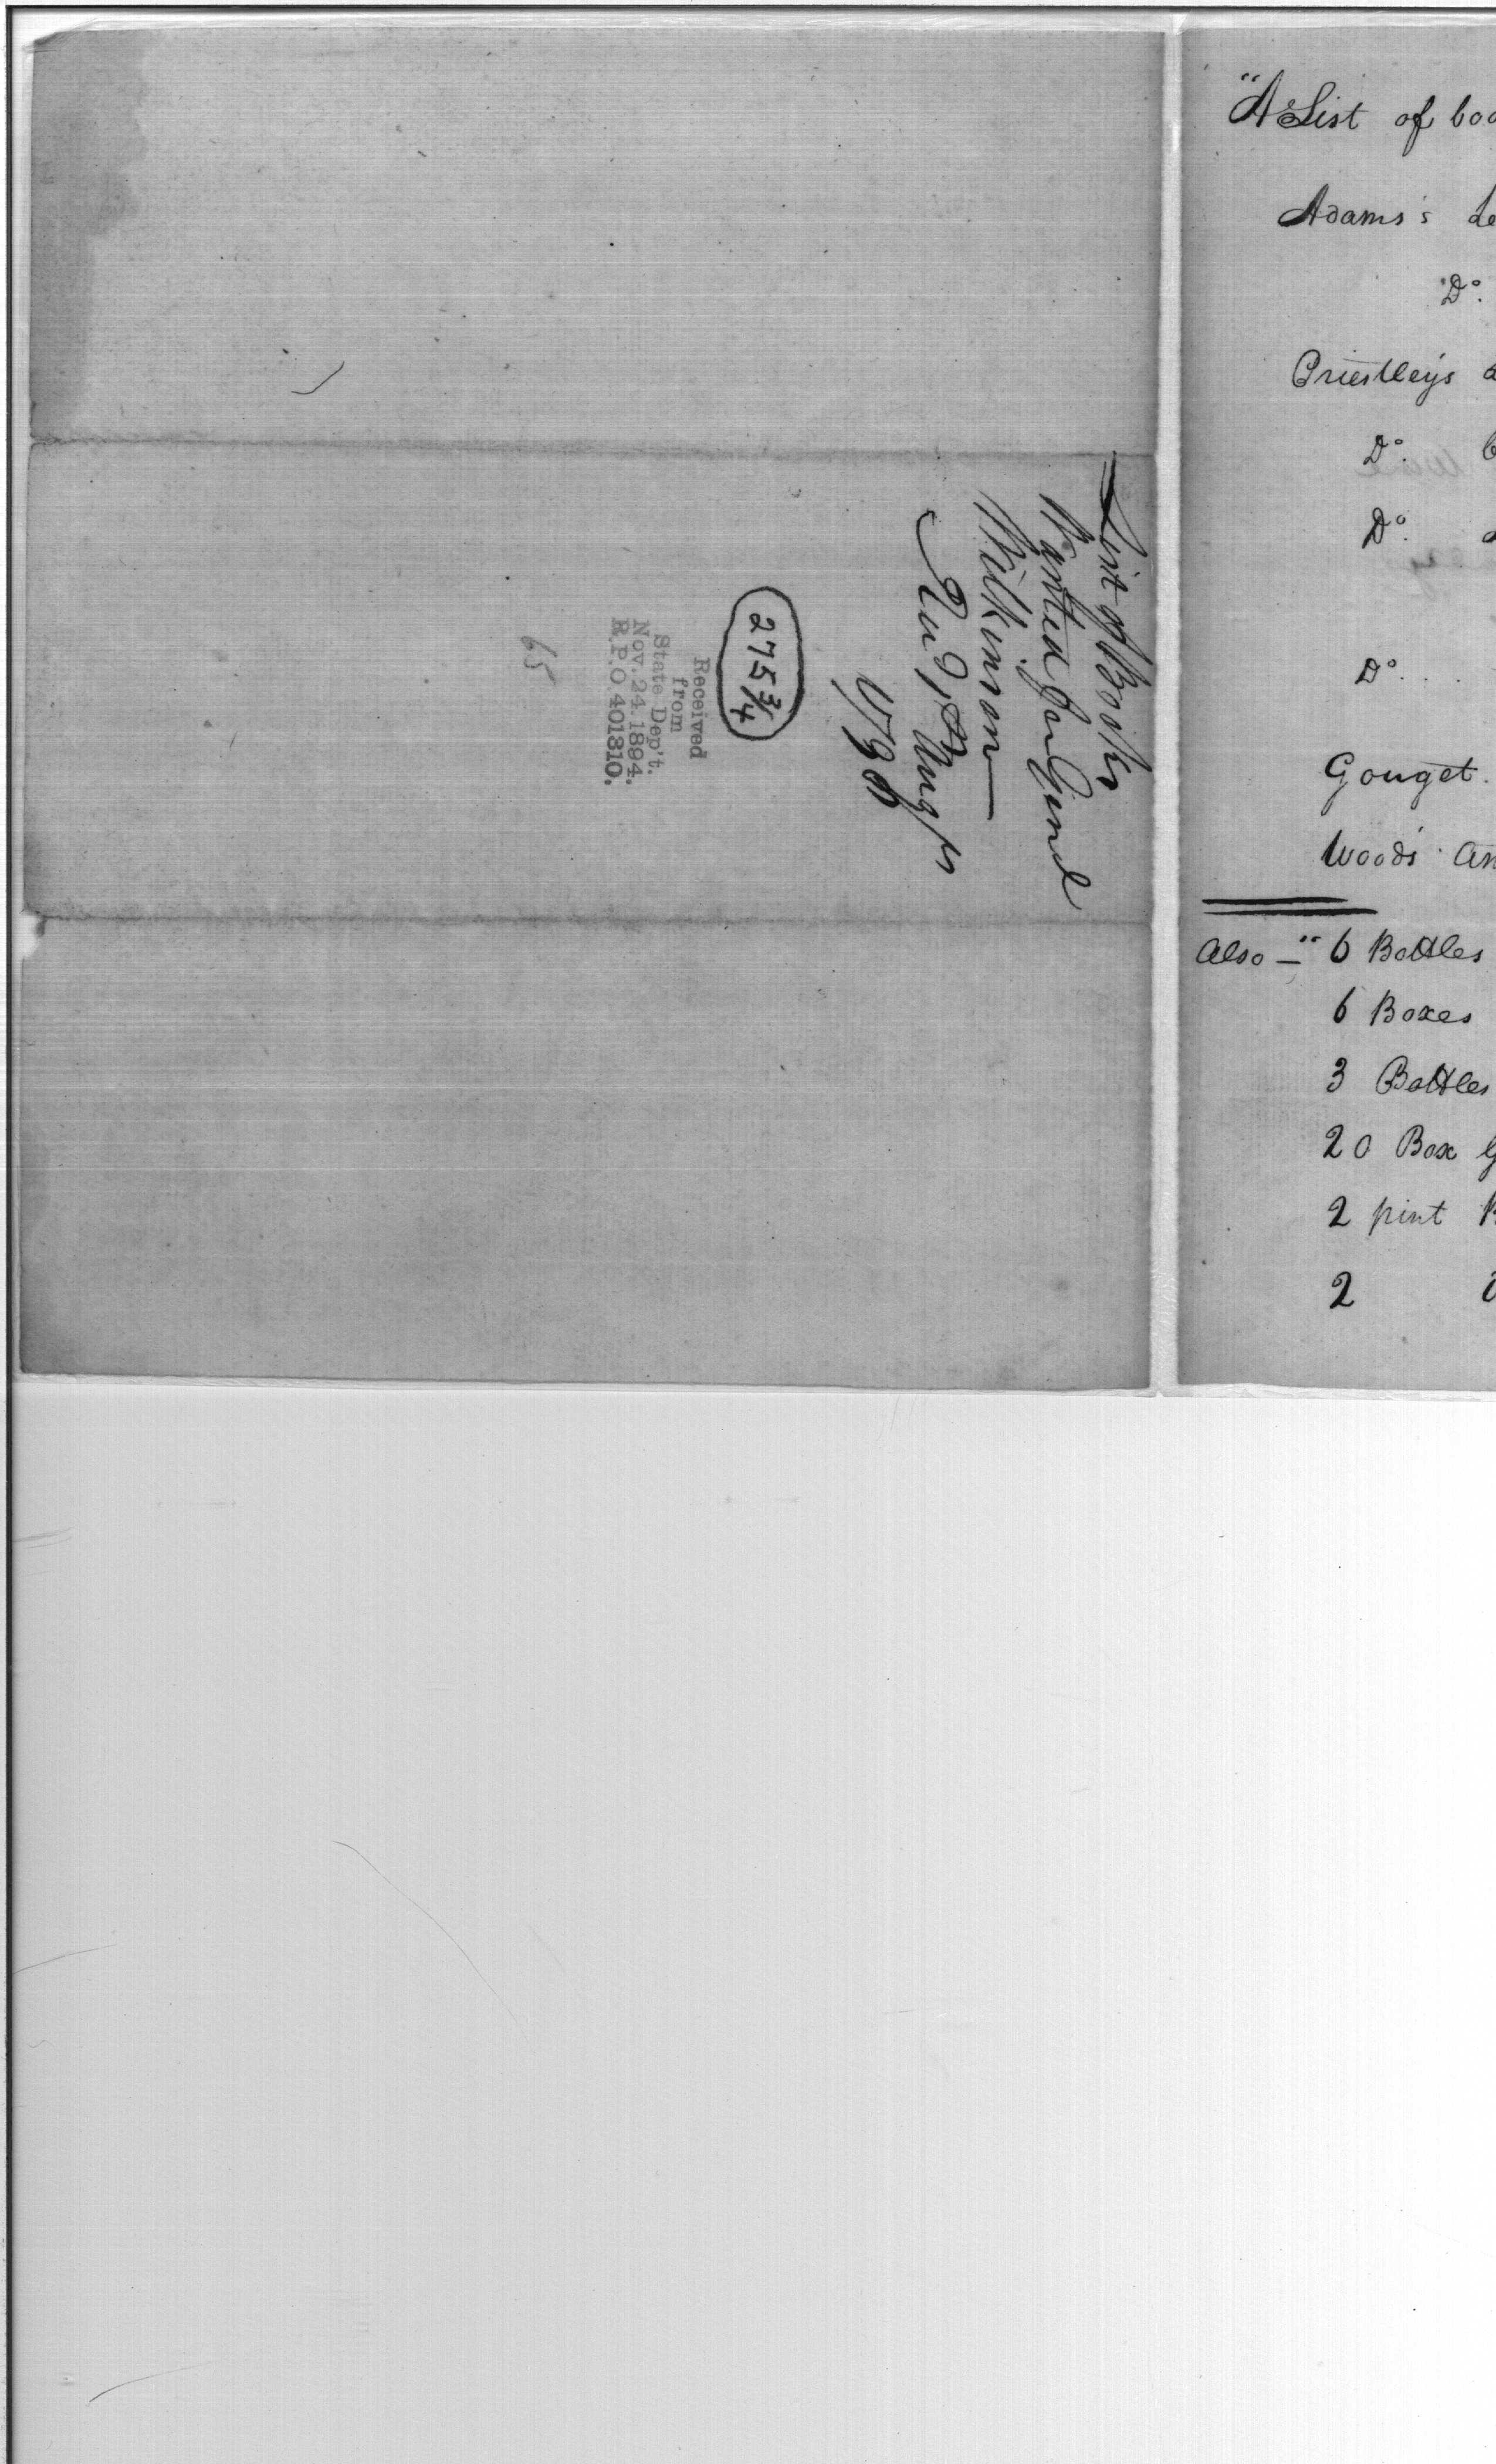 List of Books
Wanted for Genl
Wilkinson
Recd 1st Augt
275 3/4
Received
from
State Dep't.
Nov. 24. 1894.
R.P.O. 401310.
65
"A List of
Adams's
Do.
Priestley's
Do.
Do.
Do. . .
Gouget.
Woods
Also — " 6 Bottles
6 Boxes
3 Bottles
20 Box
2 pint
2